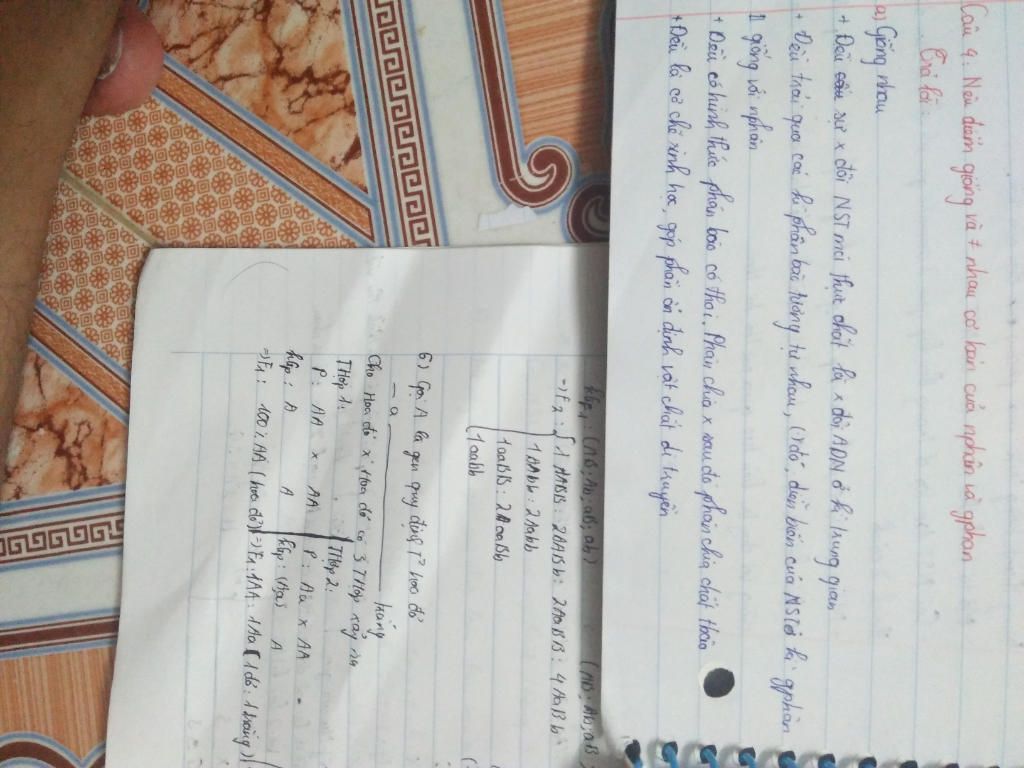 Câu 4. Nêu điểm giống và ≠ nhau cơ bản của nphân và gphân
Trả lời:
a) Giống nhau
+ Đều sự x đôi NST mà thực chất là x đôi ADN ở kì trung gian
+ Đều trải qua các kì phân bào tương tự nhau, diễn biến của NST ở kì gphân
II giống với nphân
+ Đều có hình thức phân bào có thoi. Phân chia x sau đó phân chia chất
+ Đều là cơ chế sinh học, góp phần ổn định vật chất di truyền
F1: (AB; Ab; aB; ab) (AB; Ab; aB
=> F2: 1 AABB: 2AABb: 2AaBB: 4AaBb
1 AAbb: 2Aabb
1 aaBB: 2aaBb
1 aabb
6) Gọi A là gen quy định T² hoa đỏ
- a trắng
Cho Hoa đỏ x Hoa đỏ có 3 THợp xảy ra
THợp 1: THợp 2:
P: AA x AA P: Aa x AA
A A (A; a) A
=> F1: 100% AA (hoa đỏ) => F1: 1AA: 1Aa (1 đỏ: 1 trắng)